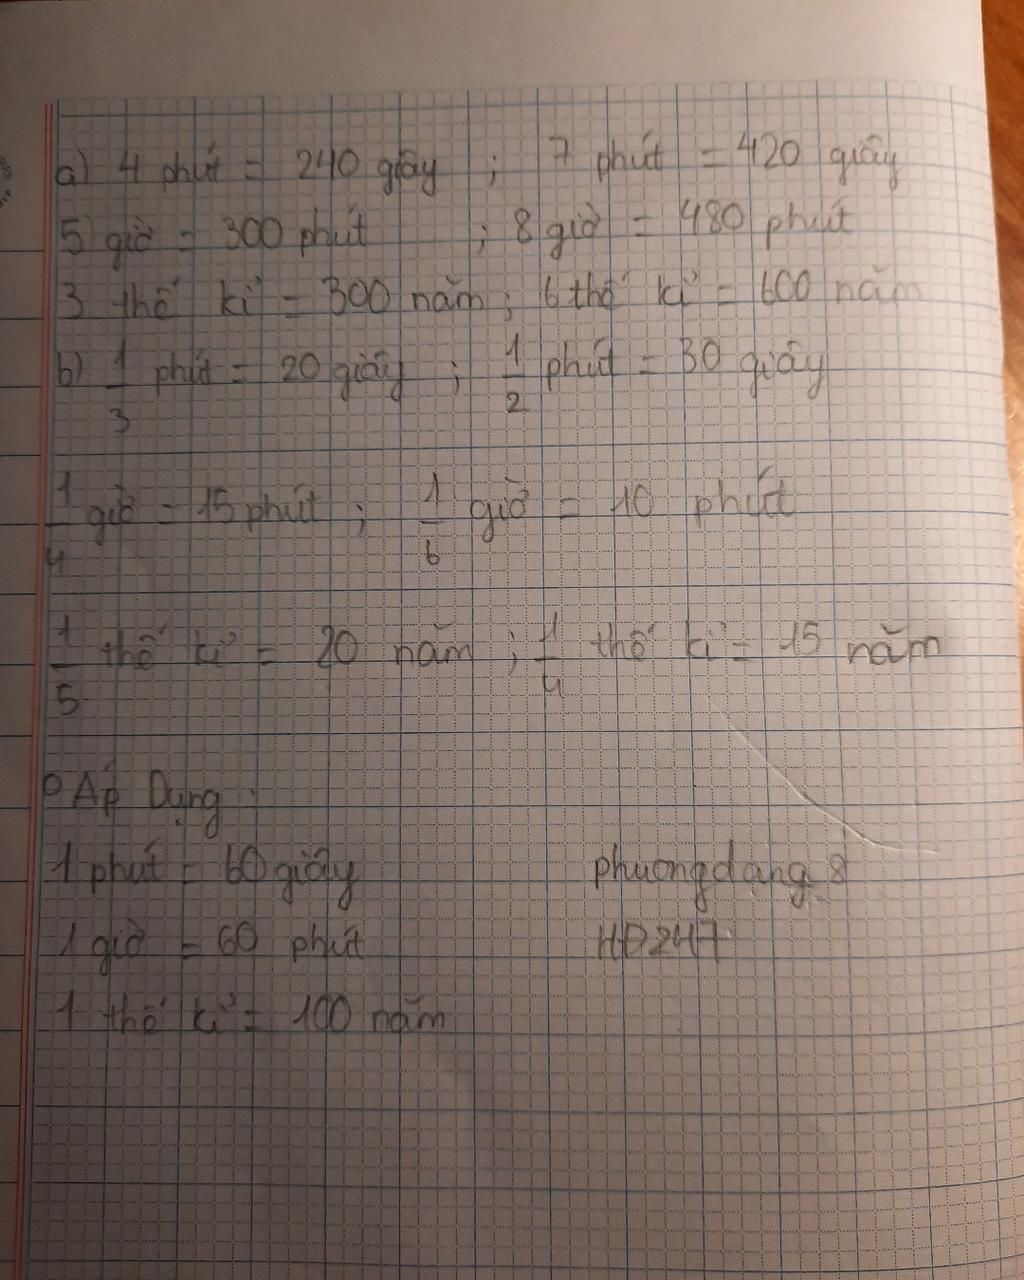 a) 4 phút = 240 giây ; 7 phút = 420 giây
5 giờ = 300 phút ; 8 giờ = 480 phút
3 thế kỉ = 300 năm ; 6 thế kỉ = 600 năm
b) 1/3 phút = 20 giây ; 1/2 phút = 30 giây
1/4 giờ = 15 phút ; 1/6 giờ = 10 phút
1/5 thế kỉ = 20 năm ; 1/4 thế kỉ = 15 năm
Áp Dụng :
1 phút = 60 giây phuongdang8
1 giờ = 60 phút HD247
1 thế kỉ = 100 năm